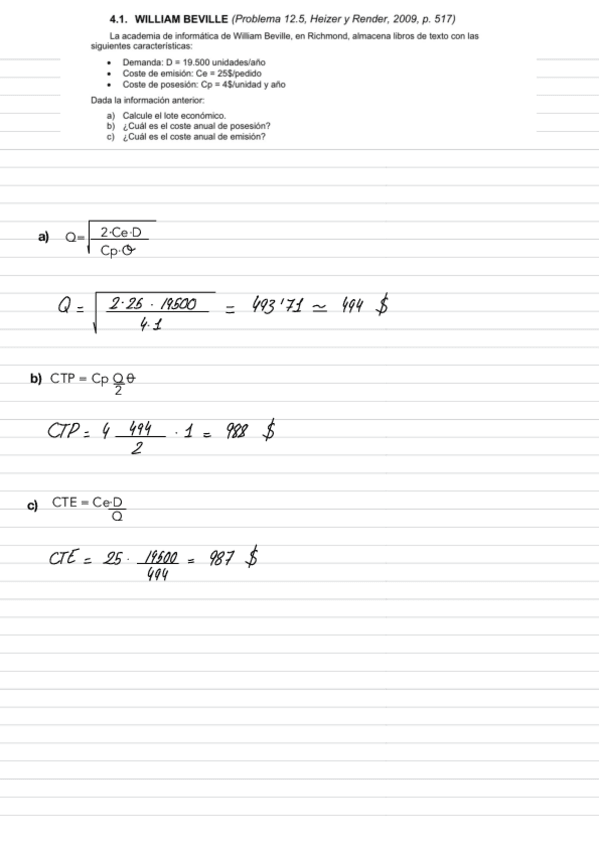 4.1. WILLIAM BEVILLE (Problema 12.5, Heizer y Render, 2009, p. 517)
La academia de informática de William Beville, en Richmond, almacena libros de texto con las
siguientes características:
• Demanda: D = 19.500 unidades/año
• Coste de emisión: Ce = 25$/pedido
• Coste de posesión: Cp = 4$/unidad y año
Dada la información anterior:
a) Calcule el lote económico.
b) ¿Cuál es el coste anual de posesión?
c) ¿Cuál es el coste anual de emisión?
a) Q= √(2·Ce·D / Cp·θ)
Q = √(2·25 · 19500 / 4·1) = 493'71 ≃ 494 $
b) CTP = Cp Q/2 θ
CTP = 4 494/2 · 1 = 988 $
c) CTE = Ce·D/Q
CTE = 25 · 19500/494 = 987 $